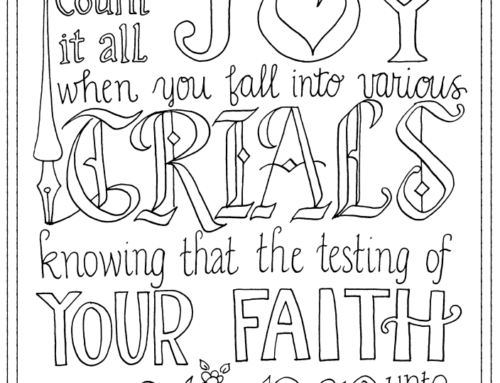 Count
it all JOY
when you fall into various
TRIALS
knowing that the testing of
YOUR FAITH
unto